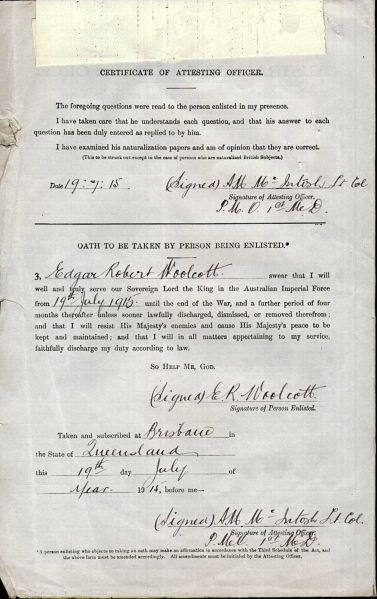 CERTIFICATE OF ATTESTING OFFICER.
The foregoing questions were read to the person enlisted in my presence.
I have taken care that he understands each question, and that his answer to each
question has been duly entered as replied to by him.
I have examined his naturalization papers and am of opinion that they are correct.
(This to be struck out except in the case of persons who are naturalised British Subjects.)
Date 19.7.15 (Signed) AM McIntosh Lt Col
Signature of Attesting Officer.
P.M.O. 1st M.D.
OATH TO BE TAKEN BY PERSON BEING ENLISTED.*
I, Edgar Robert Woolcott swear that I will
well and truly serve our Sovereign Lord the King in the Australian Imperial Force
from 19th July 1915 until the end of the War, and a further period of four
months thereafter unless sooner lawfully discharged, dismissed, or removed therefrom; and
that I will resist His Majesty's enemies and cause His Majesty's peace to be
kept and maintained; and that in all matters appertaining to my service, I will
faithfully discharge my duty according to law.
SO HELP ME, GOD.
(Signed) E. R. Woolcott.
Signature of Person Enlisted.
Taken and subscribed at Brisbane in
the State of Queensland
this 19th day July of
Year 1915, before me—
(Signed) AM McIntosh Lt. Col.
Signature of Attesting Officer.
P.M.O. 1st M.D.
*A person enlisting who objects to taking an oath may make an affirmation in accordance with the Third Schedule of the Act, and
the above form must be amended accordingly. All amendments must be initialled by the Attesting Officer.